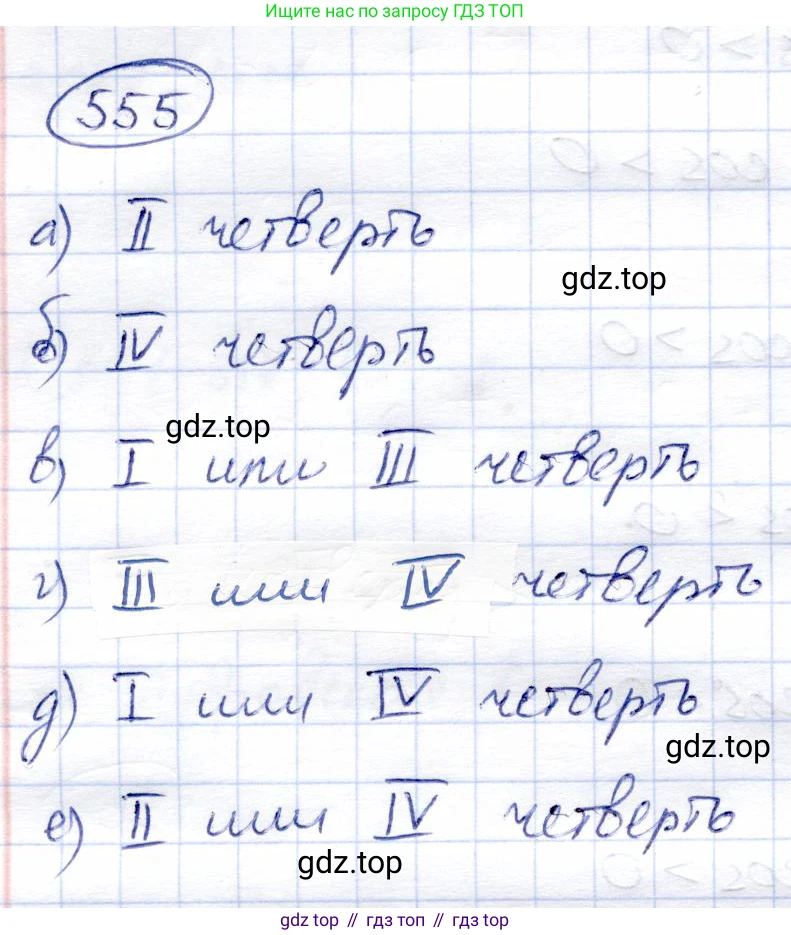 Ищите нас по запросу ГДЗ ТОП
555
а) II четверть
gdz.top
б) IV четверть
gdz.top
в) I или III четверть
г) III или IV четверть
д) I или IV четверть
gdz.top
е) II или IV четверть
gdz.top
gdz top // гдз топ // gdz top